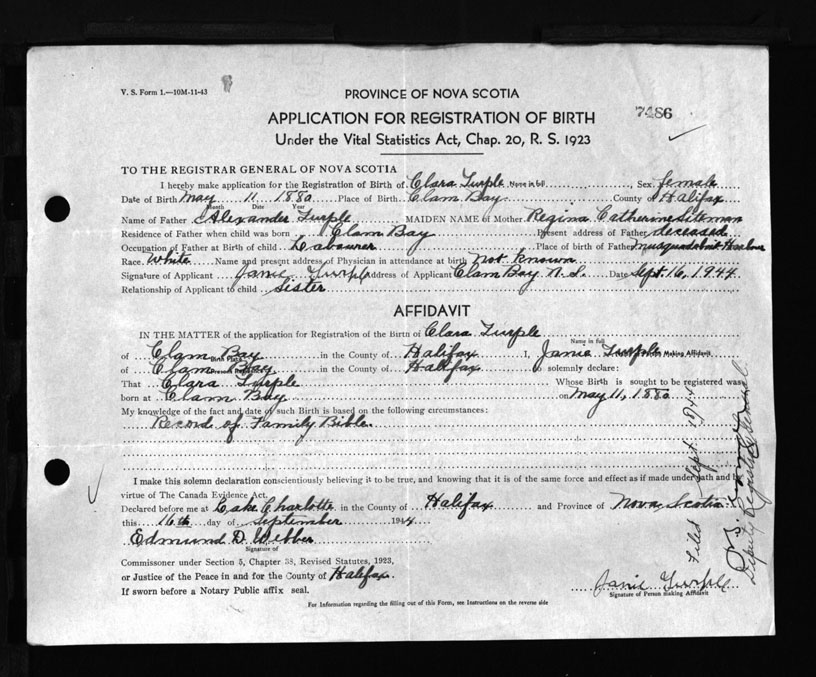 V. S. Form 1.—10M-11-43
PROVINCE OF NOVA SCOTIA
APPLICATION FOR REGISTRATION OF BIRTH
7486
Under the Vital Statistics Act, Chap. 20, R. S. 1923
TO THE REGISTRAR GENERAL OF NOVA SCOTIA
I hereby make application for the Registration of Birth of Clara Turple Name in full, Sex female
Date of Birth May 11 1880 Place of Birth Clam Bay County of Halifax
Month Date Year
Name of Father Alexander Turple MAIDEN NAME of Mother Regina Catherine Siteman
Residence of Father when child was born Clam Bay Present address of Father deceased
Occupation of Father at Birth of child Labourer Place of birth of Father Musquodoboit Harbour
Race White Name and present address of Physician in attendance at birth Not known
Signature of Applicant Janie Turple Address of Applicant Clam Bay N.S. Date Sept. 16, 1944
Relationship of Applicant to child Sister
AFFIDAVIT
IN THE MATTER of the application for Registration of the Birth of Clara Turple
Name in full
of Clam Bay in the County of Halifax I, Janie Turple
Birth Place Person Making Affidavit
of Clam Bay in the County of Halifax do solemnly declare:
That Clara Turple Whose Birth is sought to be registered was
born at Clam Bay on May 11, 1880
My knowledge of the fact and date of such Birth is based on the following circumstances:
Record of Family Bible.
I make this solemn declaration conscientiously believing it to be true, and knowing that it is of the same force and effect as if made under oath and by
virtue of The Canada Evidence Act.
Declared before me at Lake Charlotte in the County of Halifax and Province of Nova Scotia
this 16th day of September 1944
Edmund D. Webber
Signature of
Commissoner under Section 5, Chapter 38, Revised Statutes, 1923,
or Justice of the Peace in and for the County of Halifax.
If sworn before a Notary Public affix seal.
Janie Turple
Signature of Person making Affidavit
For Information regarding the filling out of this Form, see Instructions on the reverse side
Filed Sept. 1944
Deputy Registrar General